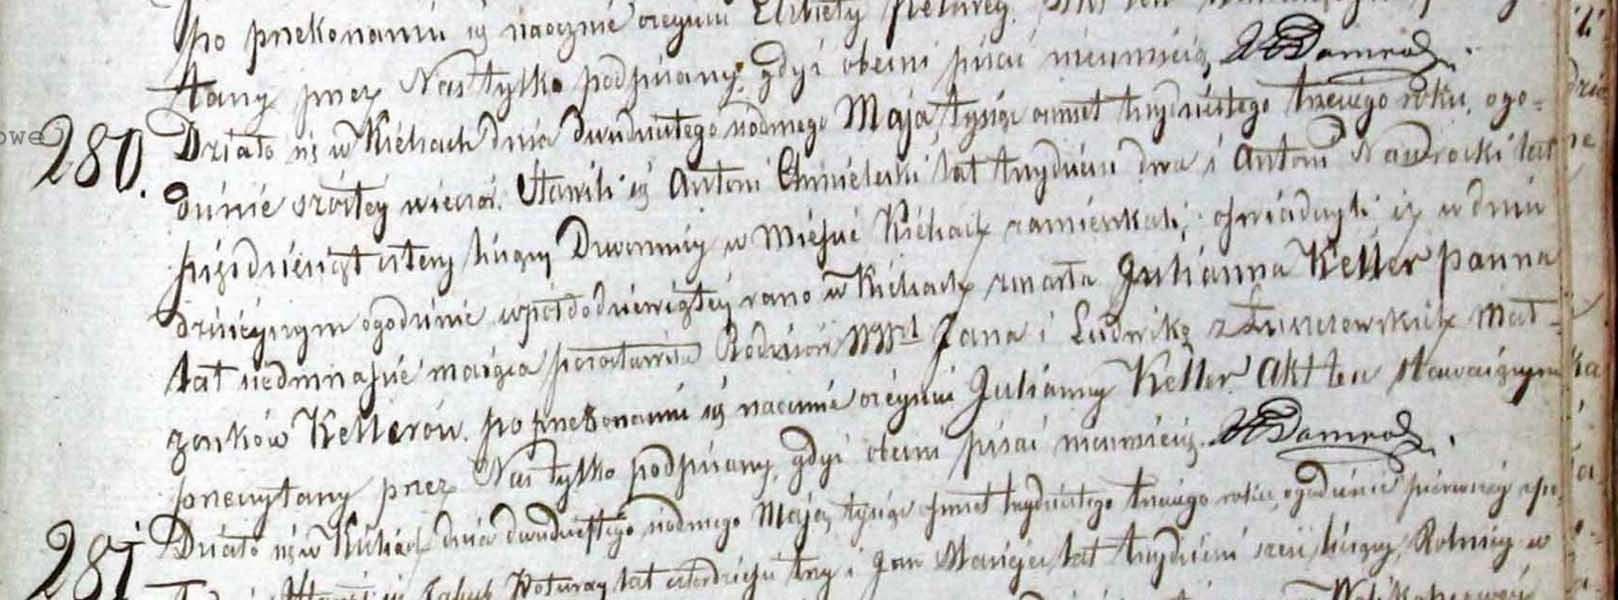 po przekonaniu się naocznie o zeyściu Elżbiety
tany przez Nas tylko podpisany, gdyż obecni pisać nieumieią XBDamrod.
280. Działo się w Kielcach dnia dwudziestego siodmego Maja, tysiąc osmset trzydziestego trzeciego roku, ogo=
dzinie szóstey wieczór. Stawili się Antoni Chmielecki lat trzydzieści dwa i Antoni Nawrocki lat
pięśdziesiąt cztery liczący Dworscy w Mieście Kielcach zamieszkali, oświadczyli iż w dniu
dzisieyszym ogodzinie wpół do dziewiątey rano w Kielcach zmarła Julianna Keller panna
lat siedmnaście maiąca pozostawiła Rodziców Jana i Ludwikę z Łuszczewskich Mał=
żonków Kellerów. po przekonaniu się naocznie o zeyściu Julianny Keller Akt ten stawaiącym
przeczytany przez Nas tylko podpisany, gdyż obecni pisać nieumieią. XBDamrod.
281 Działo się w Kielcach dnia dwudziestego siodmego Maja, tysiąc osmset trzydziestego trzeciego roku, ogodzinie pierwszey
Stawili się Jakub lat czterdzieści trzy i Jan lat trzydzieści sześć liczący, Rolnicy w